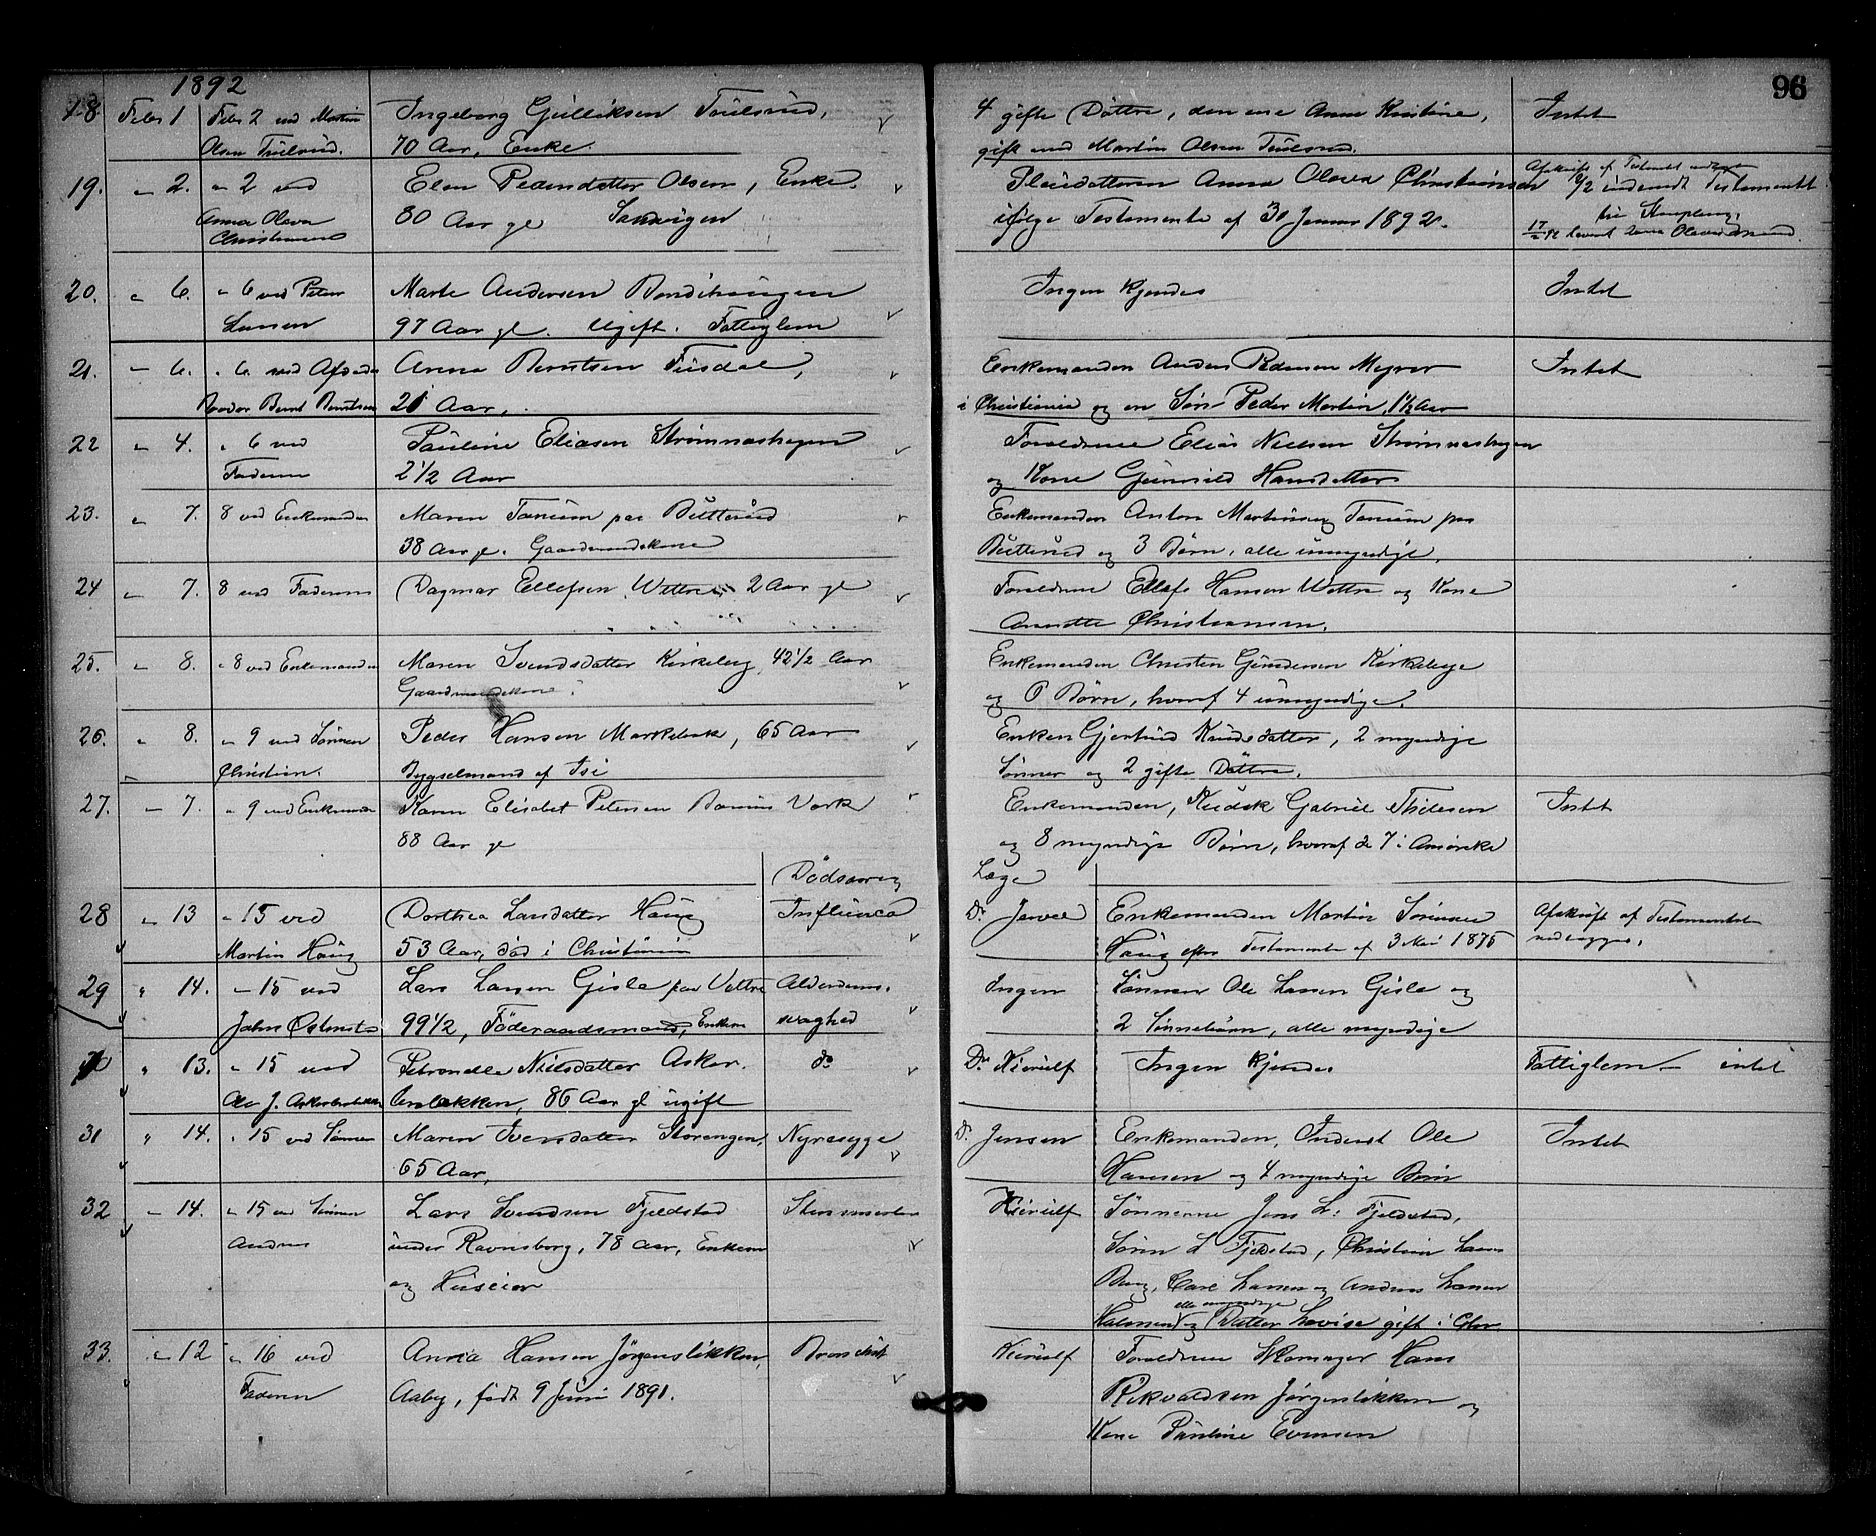 1892
96
18. Febr 1 Febr 2 ved Martin Ingeborg Gulliksen 4 gifte Døttre, den ene Anna Kristine, Intet
Olsen 70 Aar, Enke. gift med Martin Olsen
19. " 2. " 2 ved Elen Pedersdatter Olsen, Enke Pleiedatteren Anna Olava Christiansen Afskrift af Testamentet
Anna Olava 80 Aar gl Sandvigen ifølge Testamente af 30 Januar 1892.
Christiansen
20. " 6. " 6 ved Peter Marte Andersen Bondihaugen Ingen kjendes Intet
Larsen 97 Aar gl. Ugift. Fattiglem
21. " 6. " 6. ved Afdødes Anna Berntsen Tusdal, Enkemanden Anders Pedersen Myrer Intet
Broder Bernt Berntsen 21 Aar, i Christiania og en Søn Peder Martin, 1½ Aar
22 " 4. " 6 ved Pauline Eliasen Strømnæshagen Forældrene Elias Nielsen Strømnæshagen
Faderen 2½ Aar og Kone Gunhild Hansdatter
23. " 7. 8 ved Enkemanden Maren Tanum paa Butterud Enkemanden Anton Martinsen Tanum paa
38 Aar gl. Gaardmandskone Butterud og 3 Børn, alle umyndige.
24 " 7. 8 ved Faderen Dagmar Ellefsen Wettre 2 Aar gl Forældrene Ellef Hansen Wettre og Kone
Annette Christiansen.
25. " 8. " 8 ved Enkemanden Maren Svendsdatter Kirkeberg, 42½ Aar Enkemanden Christen Gundersen Kirkeberg
Gaardmandskone. og Børn, hvoraf 4 umyndige.
26. " 8. " 9 ved Sønnen Peder Hansen Markebæk, 65 Aar Enken Gjertrud Knudsdatter, 2 myndige
Christian. Bygselmand af Isi Sønner og 2 gifte Døttre.
27. " 7. " 9 ved Enkemanden Karen Elisabet Petersen Bærums Værk Enkemanden, Kudsk Gabriel Thilesen Intet
88 Aar gl og 8 myndige Børn, hvoraf de 7 i Amerika
Dødsaarsag Læge
28 " 13 " 15 ved Dorthea Larsdatter Haug Influenca Dr Enkemanden Martin Sørensen Afskrift af Testamentet
Martin Haug 53 Aar, død i Christiania Haug efter Testamente af 3 Mai 1875 vedlægges.
29 " 14. " 15 ved Lars Larsen Gisle paa Vettre Alderdoms- Ingen Sønnen Ole Larsen Gisle og
John 99½, Føderaadsmand, Enkem svaghed 2 Sønnebørn, alle myndige
" 13. " 15 ved Petronelle Nielsdatter Asker. do Dr Kierulf Ingen kjendes Fattiglem – intet
Ole J. 86 Aar gl ugift
31 " 14. " 15 ved Sønnen Maren Iversdatter Storengen, Nyresyge Dr Jensen Enkemanden, Inderst Ole Intet
65 Aar, Hansen og 4 myndige Børn
32 " 14. " 15 ved Sønnen Lars Svendsen Fjeldstad Kierulf Sønnerne Jens L. Fjeldstad,
Anders under Ravnsborg, 78 Aar, Enkem Søren L Fjeldstad, Christian Larsen
og Huseier Carl Larsen og Anders Larsen
alle myndige
og Datter Lovise gift i Chra
33. " 12 " 16 ved Anna Hansen Jørgensløkken, Bronchit Kierulf Forældrene Skomager Hans
Faderen Aaby, født 9 Juni 1891. Rikvaldsen Jørgensløkken og
Kone Pauline Evensen